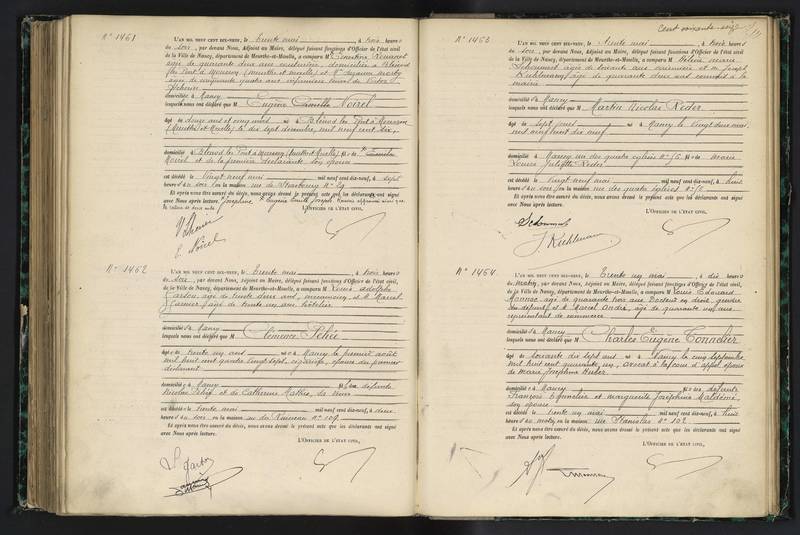 Cent soixante-seize
N° 1461
L'AN MIL NEUF CENT DIX-NEUF, le trente mai, à trois heures
du soir, par devant Nous, Adjoint au Maire, délégué faisant fonctions d'Officier de l'état civil
de la Ville de Nancy, département de Meurthe-et-Moselle, a comparu M
âgée de quarante deux ans, domiciliée à Blénod
les Pont à Mousson (Meurthe et Moselle) et
âgé de cinquante quatre ans
domiciliés à Nancy
lesquels nous ont déclaré que M Eugène Camille Noirel
âgé de douze ans et cinq mois né à Blénod les Pont à Mousson
(Meurthe et Moselle) le dix sept décembre mil neuf cent six,
domicilié à Blénod les Pont à Mousson (Meurthe et Moselle) fils de
Noirel et de la première déclarante, son épouse
est décédé le vingt neuf mai mil neuf cent dix-neuf, à sept
heures du soir, en la maison rue de Strasbourg n° 29
Et après nous être assuré du décès, nous avons dressé le présent acte que les déclarants ont signé
avec Nous après lecture.
L'OFFICIER DE L'ÉTAT CIVIL,
E. Noirel
N° 1462
L'AN MIL NEUF CENT DIX-NEUF, le trente mai, à trois heures
du soir, par devant Nous, Adjoint au Maire, délégué faisant fonctions d'Officier de l'état civil
de la Ville de Nancy, département de Meurthe-et-Moselle, a comparu M Louis Adolphe
âgé de trente deux ans, mécanicien et M Marcel
âgé de trente un ans, hôtelier
domiciliés à Nancy
lesquels nous ont déclaré que M Clémence Pehié
âgée de trente un ans née à Nancy le premier août
mil huit cent quatre vingt sept, cigarière, épouse du premier
déclarant
domiciliée à Nancy fille de défunts
Nicolas Pehié et de Catherine Mathis
est décédée le trente mai mil neuf cent dix-neuf, à deux
heures du soir, en la maison rue du Ruisseau n° 109
Et après nous être assuré du décès, nous avons dressé le présent acte que les déclarants ont signé
avec Nous après lecture.
L'OFFICIER DE L'ÉTAT CIVIL,
N° 1463
L'AN MIL NEUF CENT DIX-NEUF, le trente mai, à trois heures
du soir, par devant Nous, Adjoint au Maire, délégué faisant fonctions d'Officier de l'état civil
de la Ville de Nancy, département de Meurthe-et-Moselle, a comparu M Hélène Marie
âgée de soixante ans et M Joseph
Kuhlmann, âgé de quarante deux ans employé à la
mairie
domiciliés à Nancy
lesquels nous ont déclaré que M Martin Nicolas Reder
âgé de sept jours né à Nancy le vingt deux mai
mil neuf cent dix neuf,
domicilié à Nancy rue des quatre églises n° 15 fils de Marie
Louise Juliette Reder
est décédé le vingt neuf mai mil neuf cent dix-neuf, à huit
heures du soir, en la maison rue des quatre églises n° 15
Et après nous être assuré du décès, nous avons dressé le présent acte que les déclarants ont signé
avec Nous après lecture.
L'OFFICIER DE L'ÉTAT CIVIL,
J. Kuhlmann
N° 1464
L'AN MIL NEUF CENT DIX-NEUF, le trente un mai, à dix heures
du matin, par devant Nous, Adjoint au Maire, délégué faisant fonctions d'Officier de l'état civil
de la Ville de Nancy, département de Meurthe-et-Moselle, a comparu M Louis Edouard
âgé de quarante trois ans Docteur en droit, gendre
du défunt et M Marcel André, âgé de quarante un ans
représentant de commerce
domiciliés à Nancy
lesquels nous ont déclaré que M Charles Eugène Tonnelier
âgé de soixante dix sept ans né à Nancy le cinq septembre
mil huit cent quarante un, avocat à la cour d'appel, époux
de Marie Joséphine Huber
domicilié à Nancy fils de défunts
François Tonnelier et Marguerite Joséphine
son épouse
est décédé le trente un mai mil neuf cent dix-neuf, à huit
heures du matin, en la maison rue Stanislas n° 102
Et après nous être assuré du décès, nous avons dressé le présent acte que les déclarants ont signé
avec Nous après lecture.
L'OFFICIER DE L'ÉTAT CIVIL,